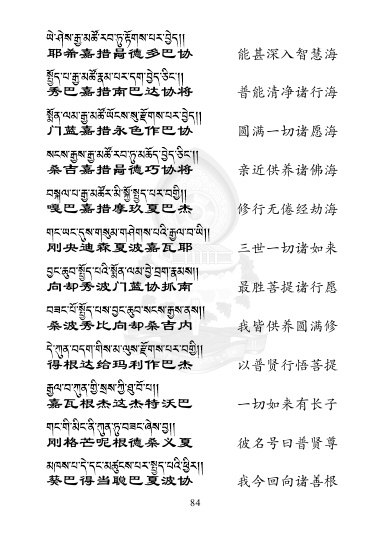 ཡེ་ཤེས་རྒྱ་མཚོ་རབ་ཏུ་རྟོགས་པར་བྱེད།།
耶希嘉措昌德多巴协 能甚深入智慧海
སྤྱོད་པ་རྒྱ་མཚོ་རྣམ་པར་དག་བྱེད་ཅིང་།།
秀巴嘉措南巴达协将 普能清净诸行海
སྨོན་ལམ་རྒྱ་མཚོ་ཡོངས་སུ་རྫོགས་པར་བྱེད།།
门蓝嘉措永色作巴协 圆满一切诸愿海
སངས་རྒྱས་རྒྱ་མཚོ་རབ་ཏུ་མཆོད་བྱེད་ཅིང་།།
桑吉嘉措昌德巧协将 亲近供养诸佛海
བསྐལ་པ་རྒྱ་མཚོར་མི་སྐྱོ་སྤྱད་པར་བགྱི།།
嘎巴嘉措摩玖夏巴杰 修行无倦经劫海
གང་ཡང་དུས་གསུམ་གཤེགས་པའི་རྒྱལ་བ་ཡི།།
刚央迪森夏波嘉瓦耶 三世一切诸如来
བྱང་ཆུབ་སྤྱོད་པའི་སྨོན་ལམ་བྱེ་བྲག་རྣམས།།
向却秀波门蓝协抓南 最胜菩提诸行愿
བཟང་པོ་སྤྱོད་པས་བྱང་ཆུབ་སངས་རྒྱས་ནས།།
桑波秀比向却桑吉内 我皆供养圆满修
དེ་ཀུན་བདག་གིས་མ་ལུས་རྫོགས་པར་བགྱི།།
得根达给玛利作巴杰 以普贤行悟菩提
རྒྱལ་བ་ཀུན་གྱི་སྲས་ཀྱི་ཐུ་བོ་པ།།
嘉瓦根杰这杰特沃巴 一切如来有长子
གང་གི་མིང་ནི་ཀུན་ཏུ་བཟང་ཞེས་བྱ།།
刚格芒呢根德桑义夏 彼名号曰普贤尊
མཁས་པ་དེ་དང་མཚུངས་པར་སྤྱད་པའི་ཕྱིར།།
葵巴得当聪巴夏波协 我今回向诸善根
84